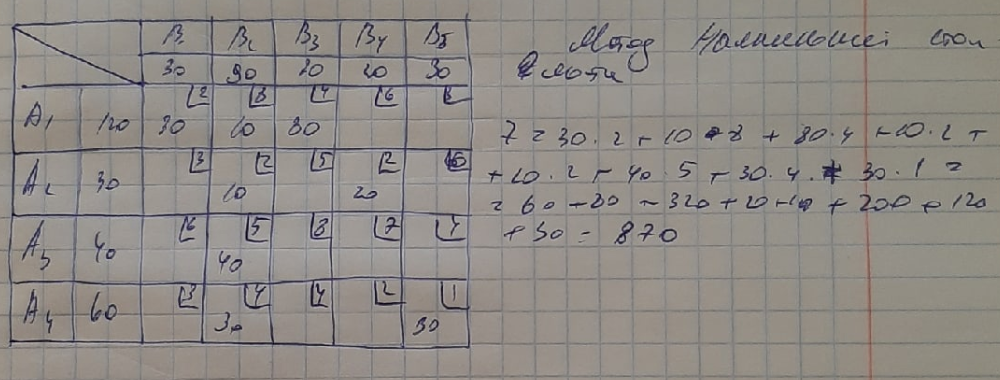 B B₂ B₃ B₄ B₅
30 90 20 30
A₁ 120 2 3 4 6 8
30 10 80
A₂ 30 3 2 5 2 6
10 20
A₃ 40 6 5 8 7 4
40
A₄ 60 3 4 4 2 1
30 30
Метод Наименьшей стои
мости
7 = 30·2 + 10·8 + 80·4 + 10·2 +
+ 20·2 + 40·5 + 30·4 + 30·1 =
= 60 + 80 + 320 + 20 + 40 + 200 + 120
+ 30 = 870